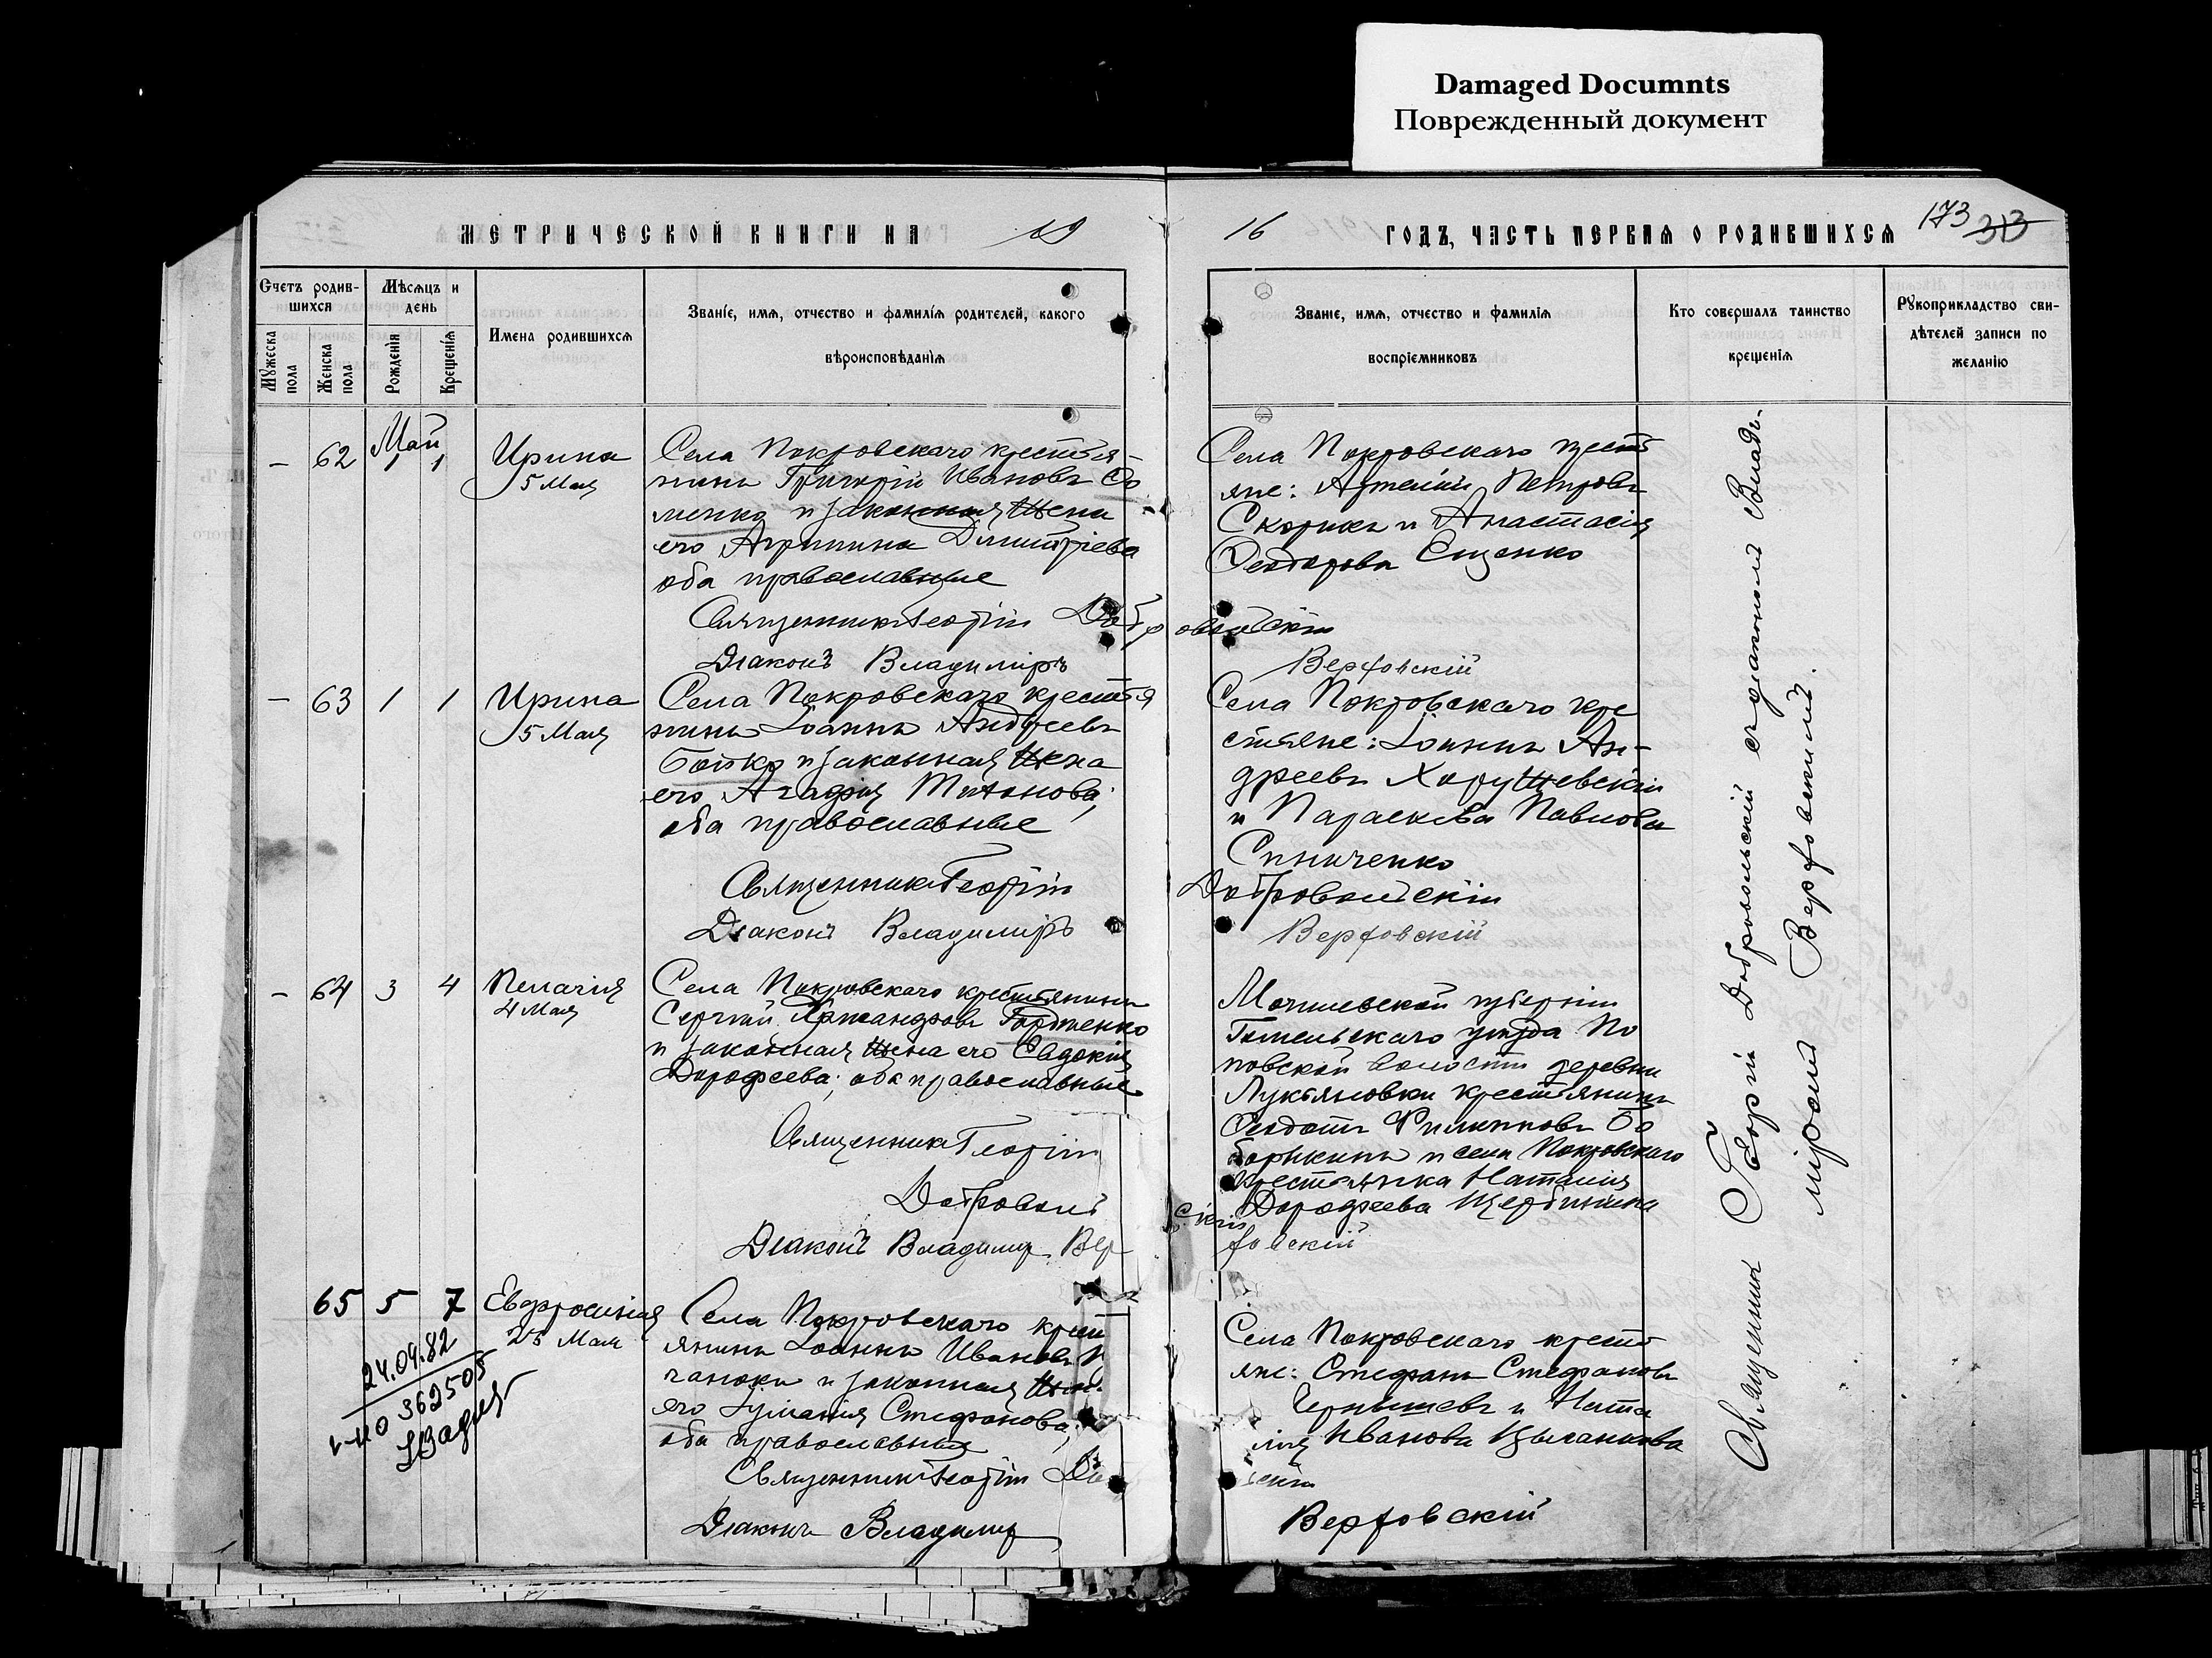 Damaged Documnts
Поврежденный документ
МЕТРИЧЕСКОЙ КНИГИ НА 19
16 ГОДЪ, ЧАСТЬ ПЕРВАЯ О РОДИВШИХСЯ
173 313
Счетъ родив-
шихся
Мужеска
пола
Женска
пола
Мѣсяцъ и
день
Рожденія
Крещенія
Имена родившихся
Званіе, имя, отчество и фамилія родителей, какого
вѣроисповѣданія
Званіе, имя, отчество и фамилія
воспріемниковъ
Кто совершалъ таинство
крещенія
Рукоприкладство сви-
дѣтелей записи по
желанію
Май
– 62 1 1
Ирина
5 Мая
Села Покровскаго крестья-
нинъ Григорій Ивановъ
менко и законная жена
его Агрипина Димитріева
оба православные
Священникъ Георгій Доб
Діаконъ Владиміръ
Села Покровскаго крест
яне: Артемій Петровъ
Скорикъ и Анастасія
Ѳеодорова Сыценко
ровольскій
Верховскій
– 63 1 1
Ирина
5 Мая
Села Покровскаго крестья
нинъ Іоаннъ Андреевъ
Бойко и законная жена
его Агафія Титонова;
оба православные
Священникъ Георгій
Діаконъ Владиміръ
Села Покровскаго кре
стьяне: Іоаннъ Ан-
дреевъ Харужевскій
и Параскева Павлова
Синиченко
Добровольскій
Верховскій
– 64 3 4
Пелагія
4 Мая
Села Покровскаго крестьянинъ
Сергій Александровъ Гордіенко
и законная жена его Евдокія
Дорофеева; оба православные
Священникъ Георгій
Добровольс
Діаконъ Владимир Вер
Могилевской губерніи
Гомельскаго уѣзда По
повской волости деревни
Лукьяновки крестьянинъ
Ѳеодотъ Филиповъ Бо
борыкинъ и села Покровскаго
крестьянка Наталія
Дорофеева Щербинина
скій
ховскій
65 5 7
Евфросинія
25 Мая
24.04.82
362505
Села Покровскаго крест
янинъ Іоаннъ Ивановъ
и законная жена
его Іуліанія Стефанова;
оба православныя
Священникъ Георгій До
Діаконъ Владимир
Села Покровскаго крест
яне: Стефанъ Стефановъ
Чернышевъ и Ната
лія Иванова Цыганкова
скій
Верховскій
Священникъ Георгій Добровольскій съ діакономъ Влади-
міромъ Верховскимъ.